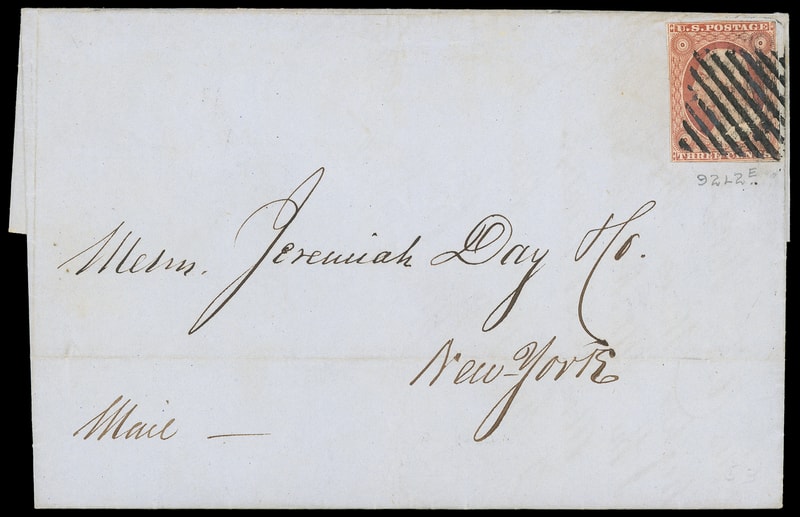 U.S. POSTAGE
THREE CENTS
92L2E
Messrs. Jeremiah Day &Co.
New-York
Mail —